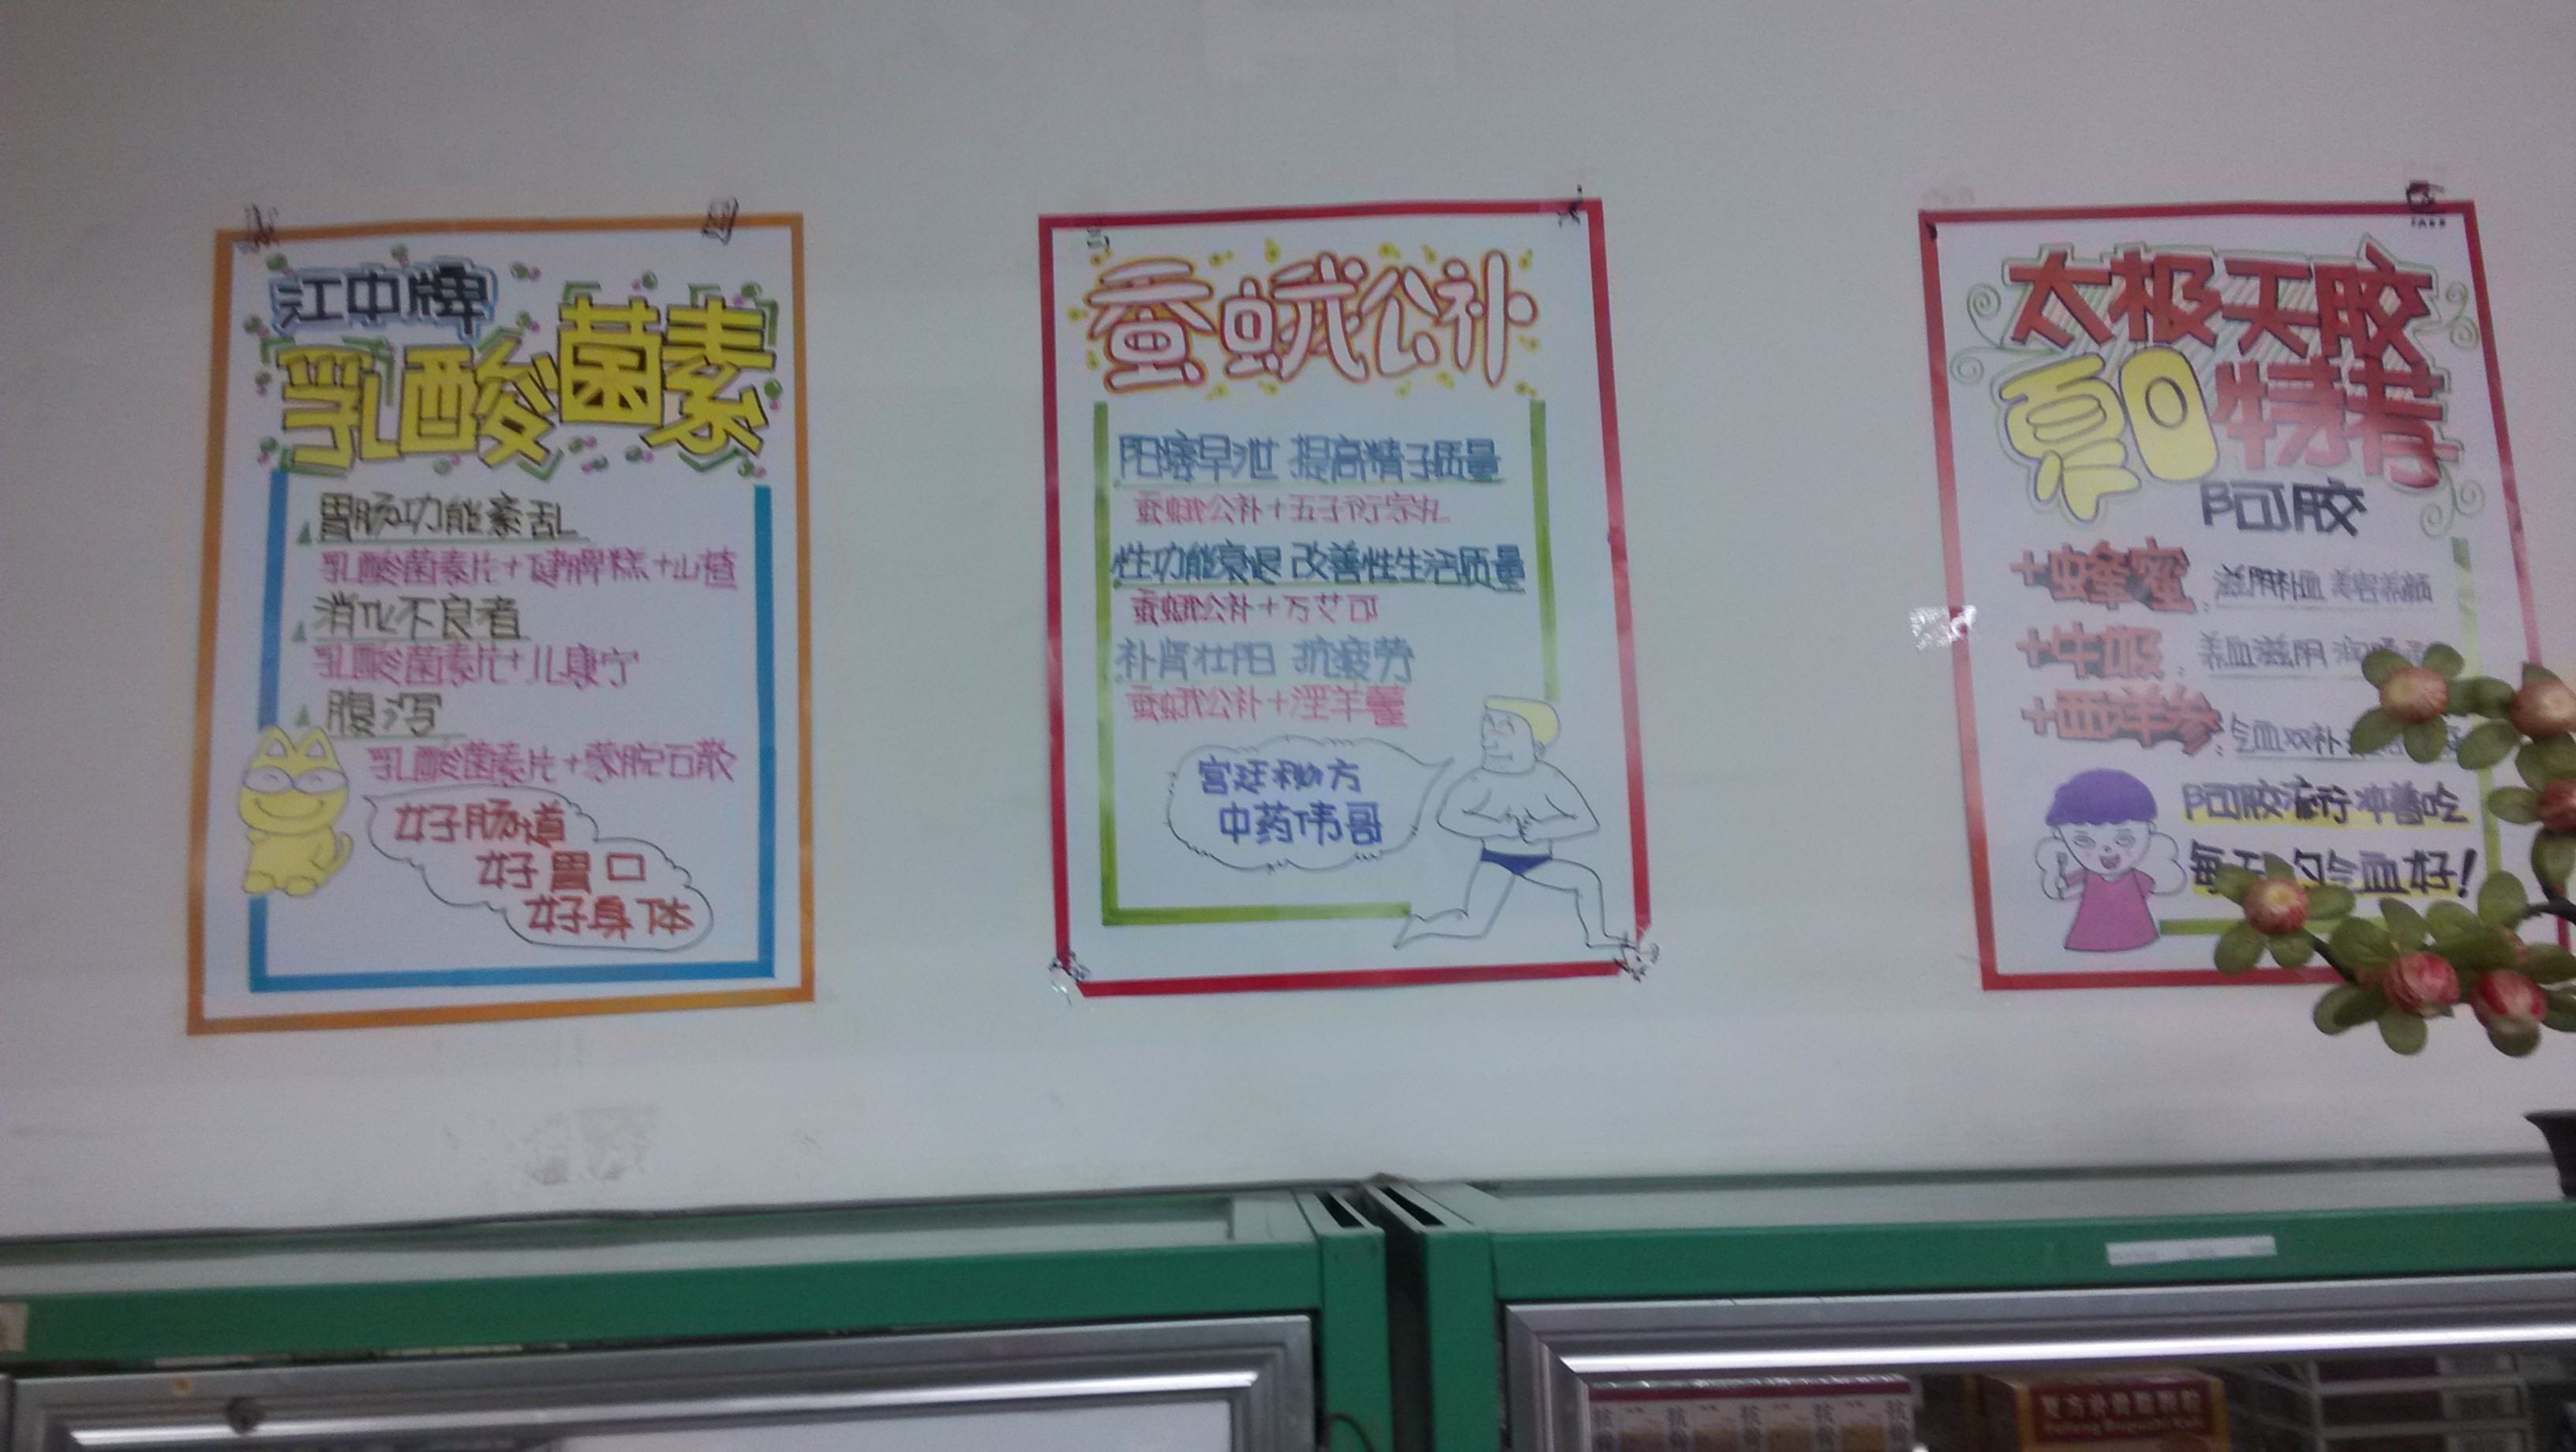 江中牌
乳酸菌素
胃肠功能紊乱
乳酸菌素片+健脾糕+山楂
消化不良者
乳酸菌素片+儿康宁
腹泻
乳酸菌素片+蒙脱石散
好肠道
好胃口
好身体
蚕蛾公补
阳痿早泄 提高精子质量
蚕蛾公补+五子衍宗丸
性功能衰退 改善性生活质量
蚕蛾公补+万艾可
补肾壮阳 抗疲劳
蚕蛾公补+淫羊藿
宫廷秘方
中药伟哥
太极天胶
夏日特荐
阿胶
+蜂蜜: 滋阴补血 美容养颜
+牛奶: 养血滋阴 润
+西洋参: 气血双补
阿胶流行冲着吃
每天 气血好!